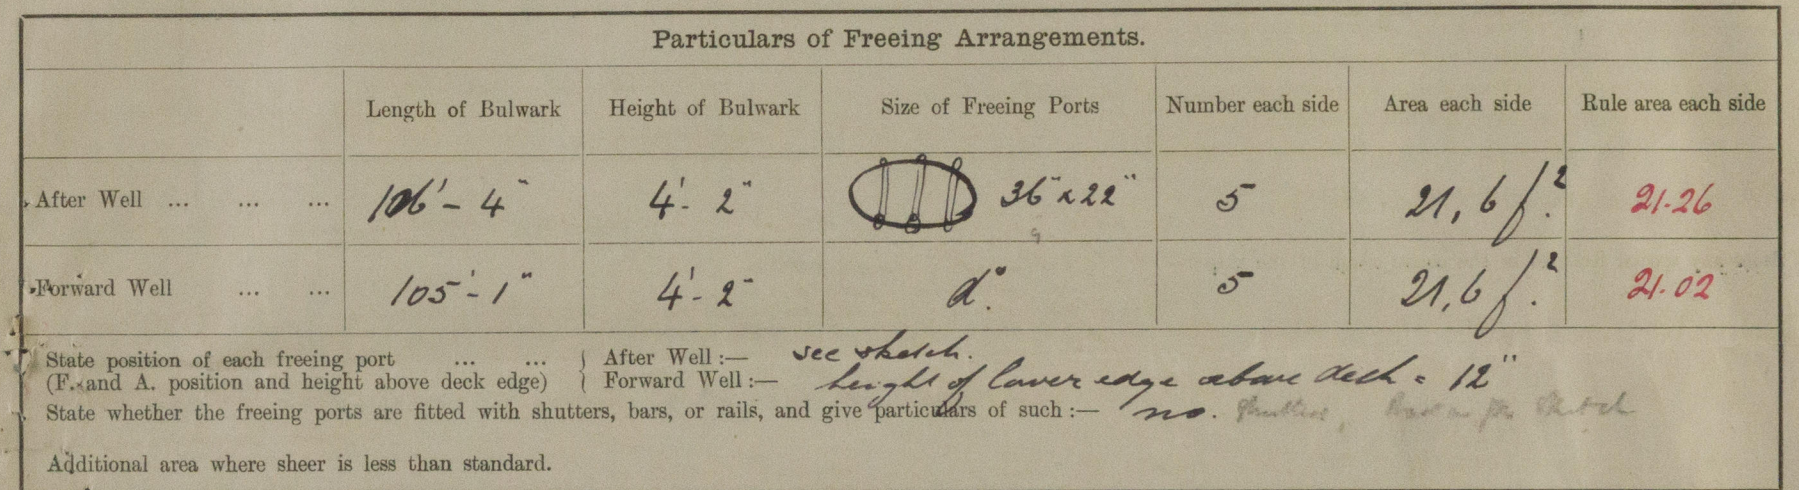 Particulars of Freeing Arrangements.
Length of Bulwark Height of Bulwark Size of Freeing Ports Number each side Area each side Rule area each side
After Well ... ... ... 106' - 4" 4' - 2" 36" x 22" 5 21,6 f.² 21.26
Forward Well ... ... 105' - 1" 4' - 2" d°. 5 21,6 f.² 21.02
State position of each freeing port ... ... { After Well :— see sketch.
(F. and A. position and height above deck edge) { Forward Well :— height of lower edge above deck = 12"
State whether the freeing ports are fitted with shutters, bars, or rails, and give particulars of such :— no. Shutters, sketch
Additional area where sheer is less than standard.